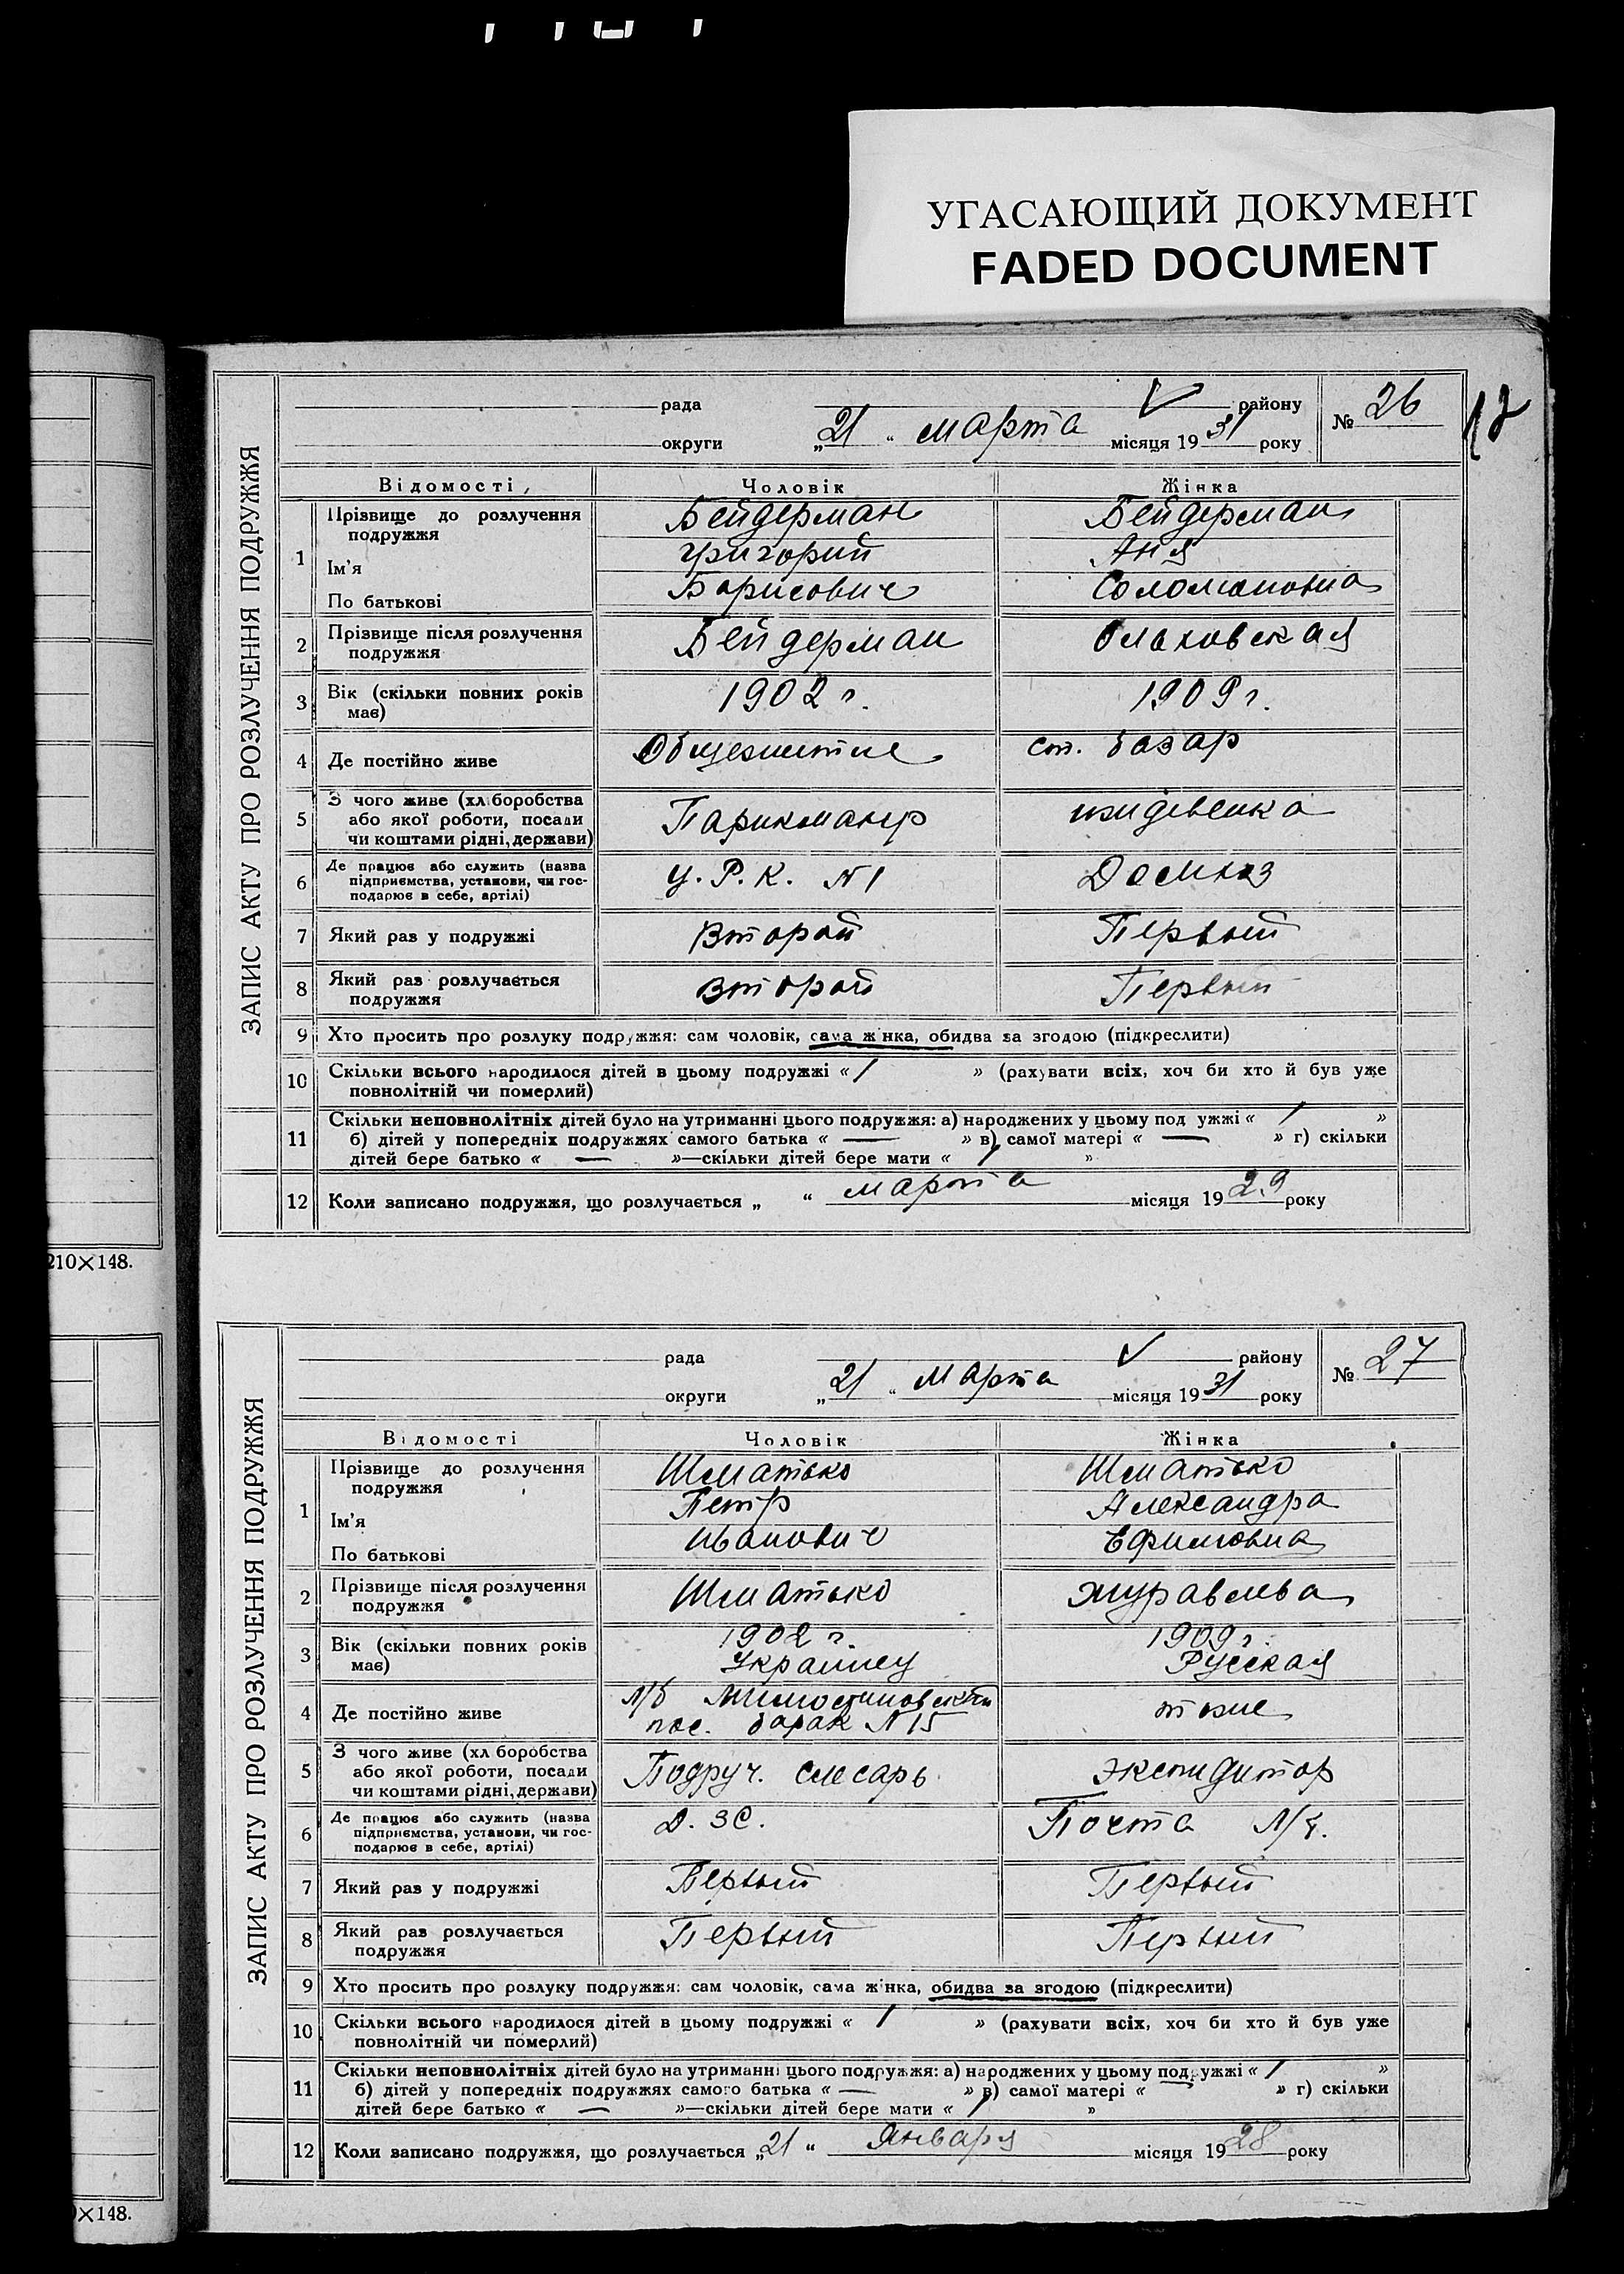 УГАСАЮЩИЙ ДОКУМЕНТ
FADED DOCUMENT
12
ЗАПИС АКТУ ПРО РОЗЛУЧЕННЯ ПОДРУЖЖЯ
рада району № 26
округи „21“ марта місяця 1931 року
Відомості Чоловік Жінка
1 Прізвище до розлучення подружжя Бейдерман Бейдерман
Ім'я Григорий Аня
По батькові Борисович Соломоновна
2 Прізвище після розлучення подружжя Бейдерман
3 Вік (скільки повних років має) 1902 г. 1909 г.
4 Де постійно живе Общежитие ст. базар
5 З чого живе (хліборобства або якої роботи, посади чи коштами рідні, держави) Парикмахер иждевенка
6 Де працює або служить (назва підприємства, установи, чи господарює в себе, артілі) У.Р.К. N 1
7 Який раз у подружжі Второй Первый
8 Який раз розлучається подружжя Второй Первый
9 Хто просить про розлуку подружжя: сам чоловік, сама жінка, обидва за згодою (підкреслити)
10 Скільки всього народилося дітей в цьому подружжі « 1 » (рахувати всіх, хоч би хто й був уже
повнолітній чи померлий)
11 Скільки неповнолітніх дітей було на утриманні цього подружжя: а) народжених у цьому подружжі « 1 »
б) дітей у попередніх подружжях самого батька « — » в) самої матері « — » г) скільки
дітей бере батько « — »—скільки дітей бере мати « 1 »
12 Коли записано подружжя, що розлучається „ “ марта місяця 1929 року
210×148.
ЗАПИС АКТУ ПРО РОЗЛУЧЕННЯ ПОДРУЖЖЯ
рада району № 27
округи „21“ марта місяця 1931 року
Відомості Чоловік Жінка
1 Прізвище до розлучення подружжя Шматько Шматько
Ім'я Петр Александра
По батькові Иванович Ефимовна
2 Прізвище після розлучення подружжя Шматько Журавлева
3 Вік (скільки повних років має) 1902 г. 1909 г.
Украинец Русская
4 Де постійно живе пос. барак N 15 тоже
5 З чого живе (хліборобства або якої роботи, посади чи коштами рідні, держави) Подруч. слесарь экспидитор
6 Де працює або служить (назва підприємства, установи, чи господарює в себе, артілі) Д.ЗС. Почта
7 Який раз у подружжі Первый Первый
8 Який раз розлучається подружжя Первый Первый
9 Хто просить про розлуку подружжя: сам чоловік, сама жінка, обидва за згодою (підкреслити)
10 Скільки всього народилося дітей в цьому подружжі « 1 » (рахувати всіх, хоч би хто й був уже
повнолітній чи померлий)
11 Скільки неповнолітніх дітей було на утриманні цього подружжя: а) народжених у цьому подружжі « 1 »
б) дітей у попередніх подружжях самого батька « — » в) самої матері « — » г) скільки
дітей бере батько « — »—скільки дітей бере мати « 1 »
12 Коли записано подружжя, що розлучається „21“ Января місяця 1928 року
×148.